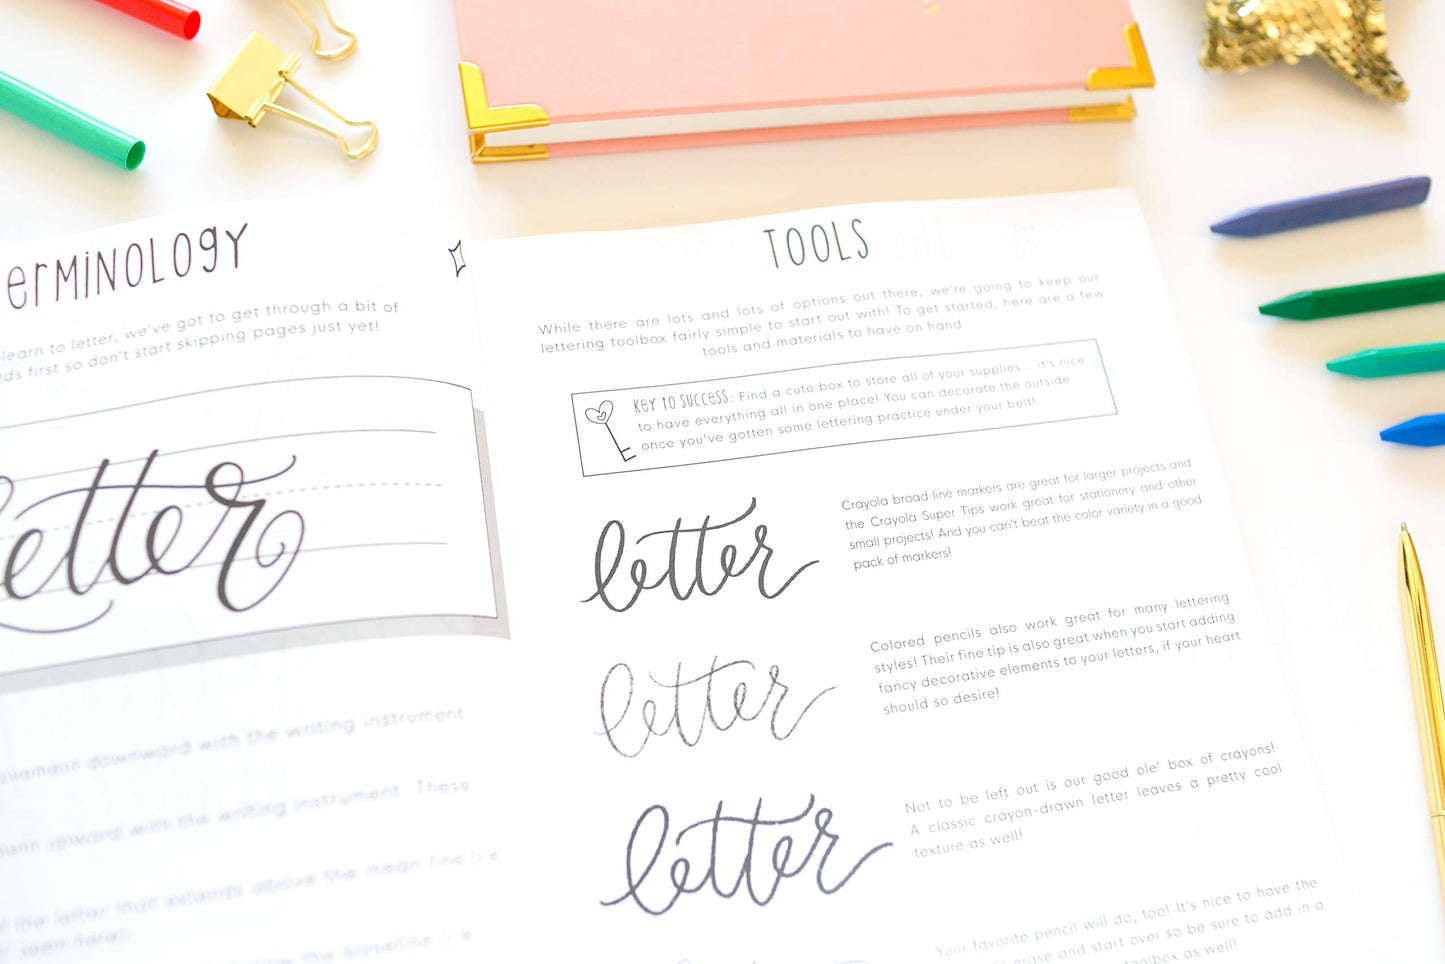 erminology
learn to letter, we've got to get through a bit of
rds first so don't start skipping pages just yet!
letter
ovement downward with the writing instrument
ment upward with the writing instrument. These
f the letter that extends above the mean line (i.e.
seen here)
the baseline (i.e.
TOOLS
While there are lots and lots of options out there, we're going to keep our
lettering toolbox fairly simple to start out with! To get started, here are a few
tools and materials to have on hand.
Key to Success: Find a cute box to store all of your supplies... it's nice
to have everything all in one place! You can decorate the outside
once you've gotten some lettering practice under your belt!
letter
Crayola broad line markers are great for larger projects and
the Crayola Super Tips work great for stationery and other
small projects! And you can't beat the color variety in a good
pack of markers!
letter
Colored pencils also work great for many lettering
styles! Their fine tip is also great when you start adding
fancy decorative elements to your letters, if your heart
should so desire!
letter
Not to be left out is our good ole' box of crayons!
A classic crayon-drawn letter leaves a pretty cool
texture as well!
Your favorite pencil will do, too! It's nice to have the
erase and start over so be sure to add in a
toolbox as well!